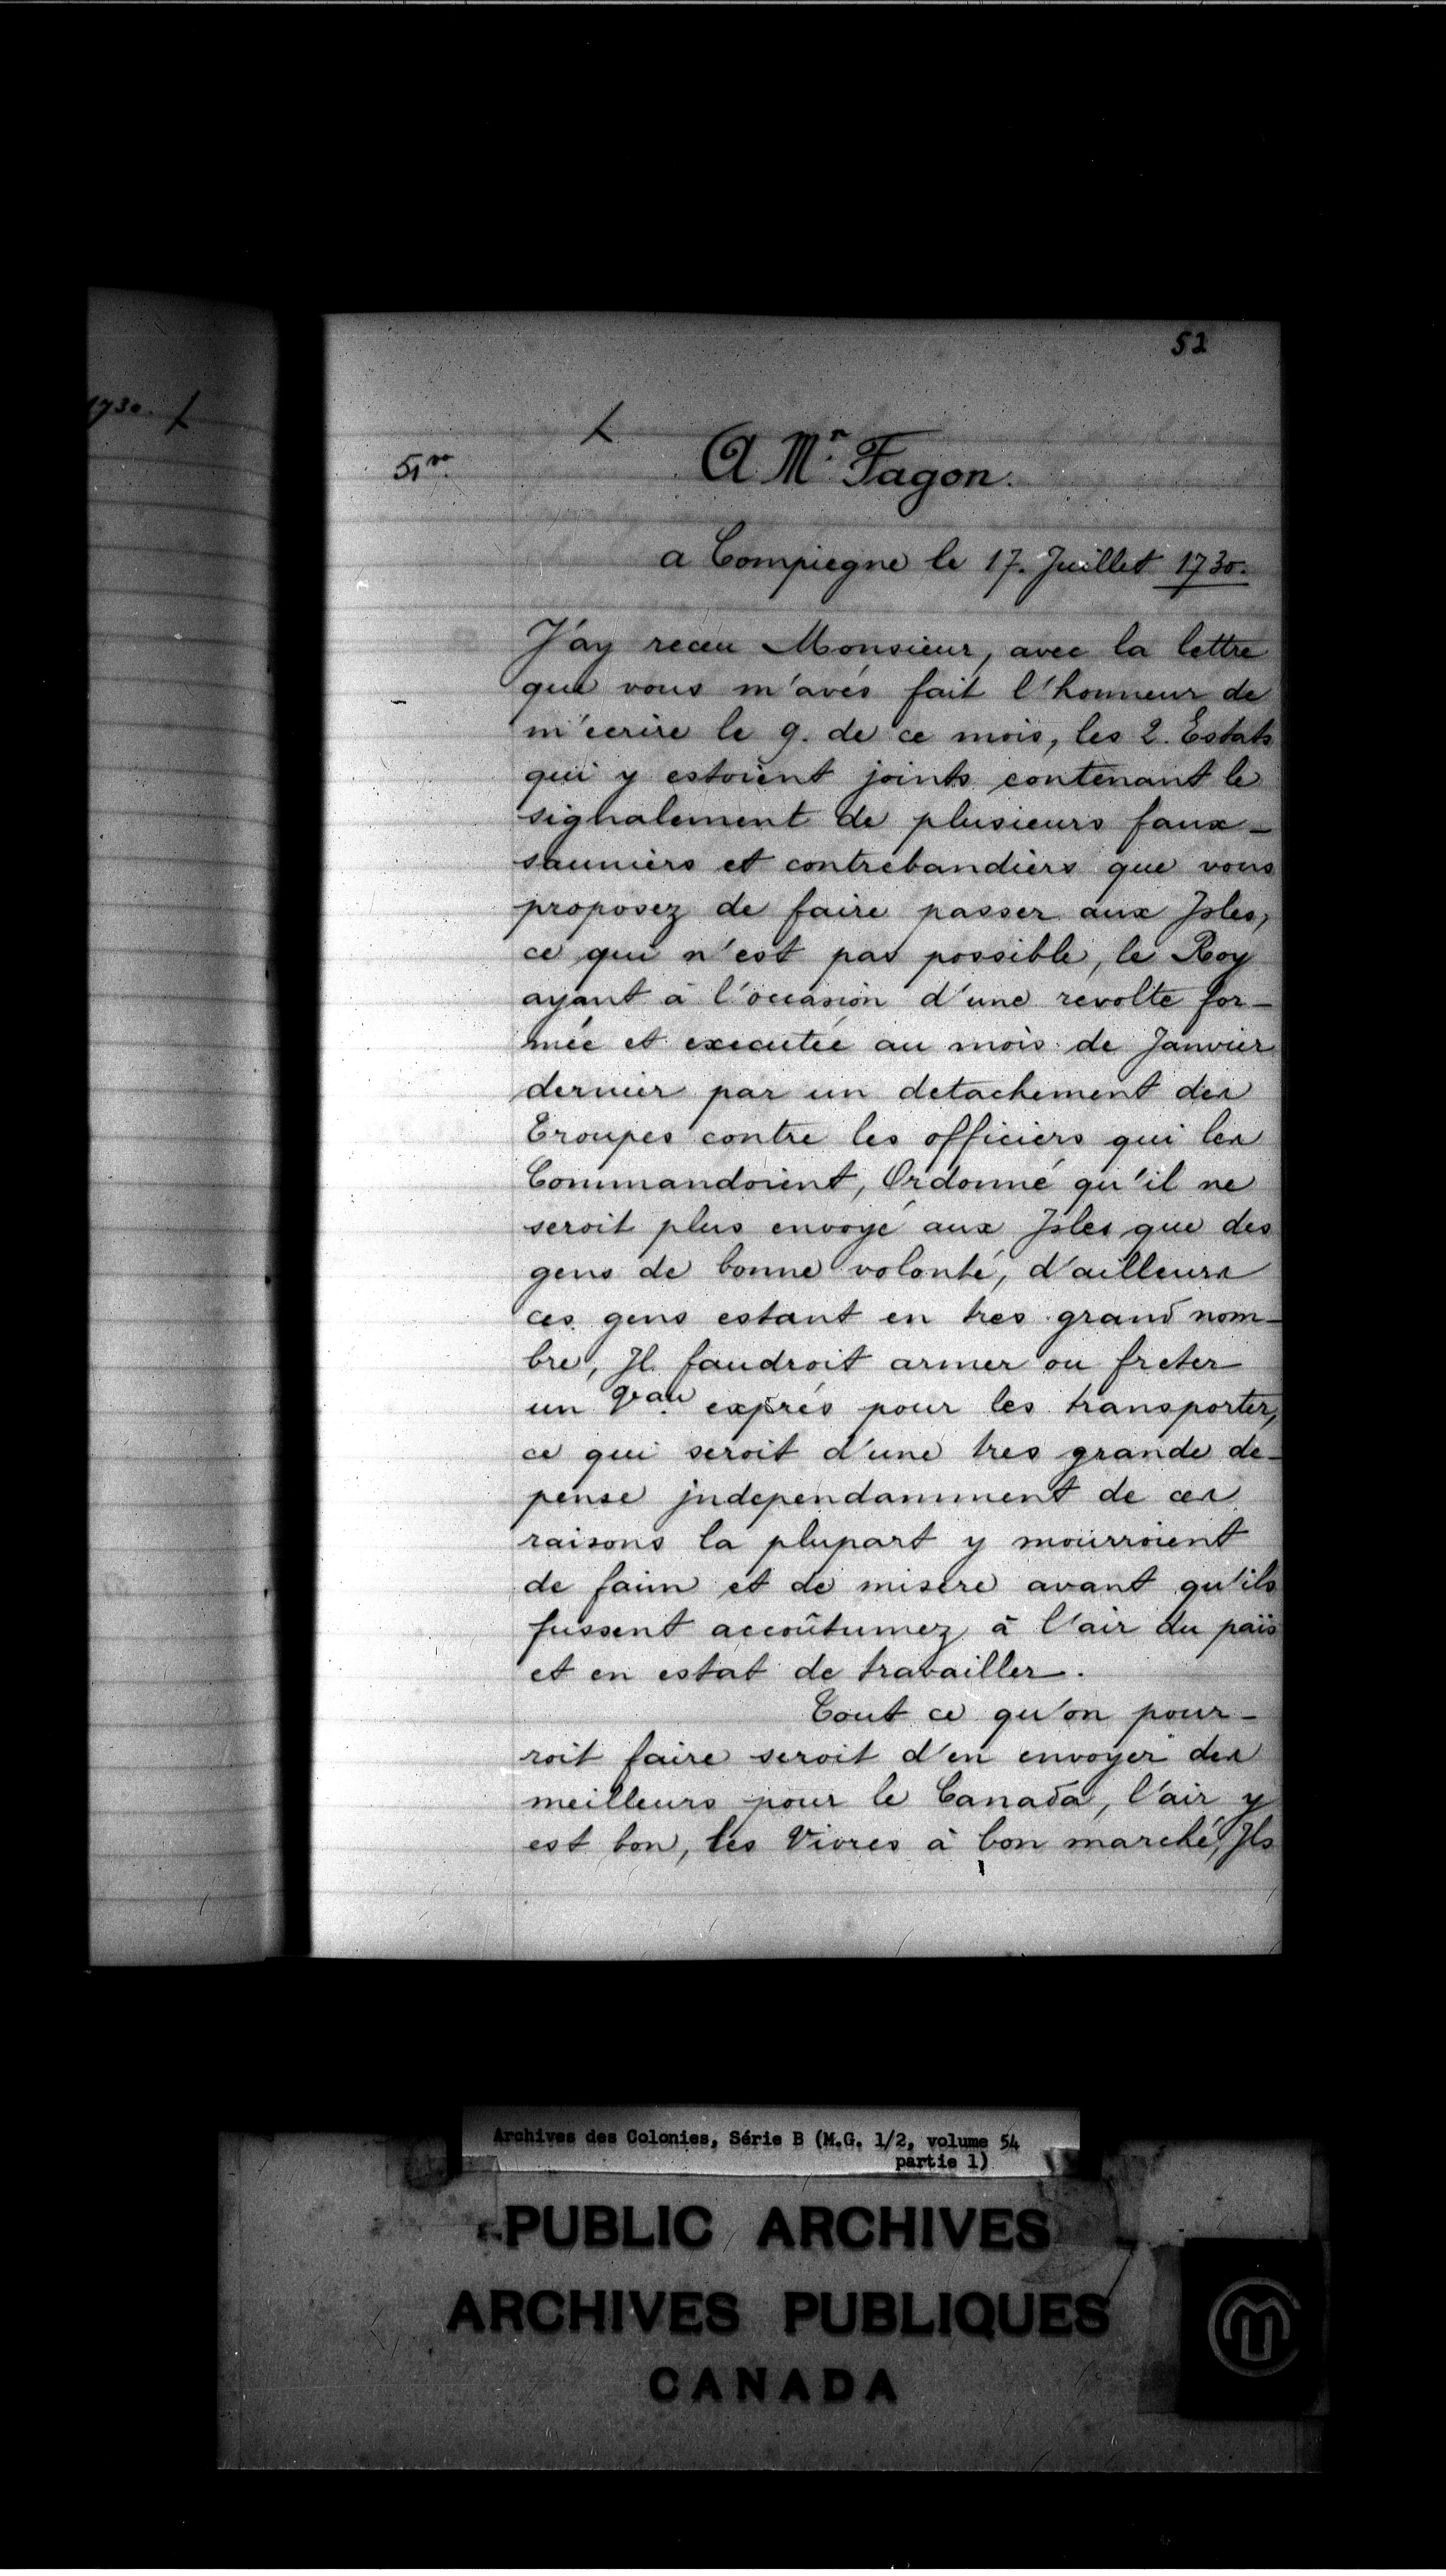 52
1730.
51 vo.
A Mr. Fagon.
a Compiegne le 17. Juillet 1730.
J'ay receu Monsieur, avec la lettre
que vous m'avés fait l'honneur de
m'ecrire le 9. de ce mois, les 2. Estats
qui y estoient joints contenant le
signalement de plusieurs faux-
sauniers et contrebandiers que vous
proposez de faire passer aux Jsles,
ce qui n'est pas possible, le Roy
ayant à l'occasion d'une revolte for-
mée et executée au mois de Janvier
dernier par un detachement des
Troupes contre les officiers qui les
Commandoient, Ordonné qu'il ne
seroit plus envoyé aux Jsles que des
gens de bonne volonté, d'ailleurs
ces gens estant en tres grand nom-
bre, Jl faudroit armer ou freter
un Vau. exprés pour les transporter,
ce qui seroit d'une tres grande de-
pense jndependamment de ces
raisons la plupart y mourroient
de faim et de misere avant qu'ils
fussent accoûtumez à l'air du païs
et en estat de travailler.
Tout ce qu'on pour-
roit faire seroit d'en envoyer des
meilleurs pour le Canada, l'air y
est bon, les Vivres à bon marché, Jls
Archives des Colonies, Série B (M.G. 1/2, volume 54
partie 1)
PUBLIC ARCHIVES
ARCHIVES PUBLIQUES
CANADA